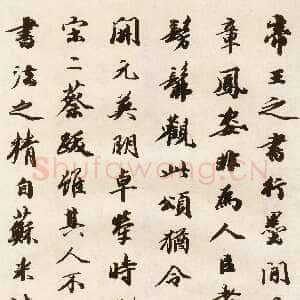 帝王之書行墨間
章鳳姿非為人臣者
髣髴觀此頌猶令
開元英明卓犖時
宋二蔡跋雖其人不
書法之精自蘇米
Shufawang.CN